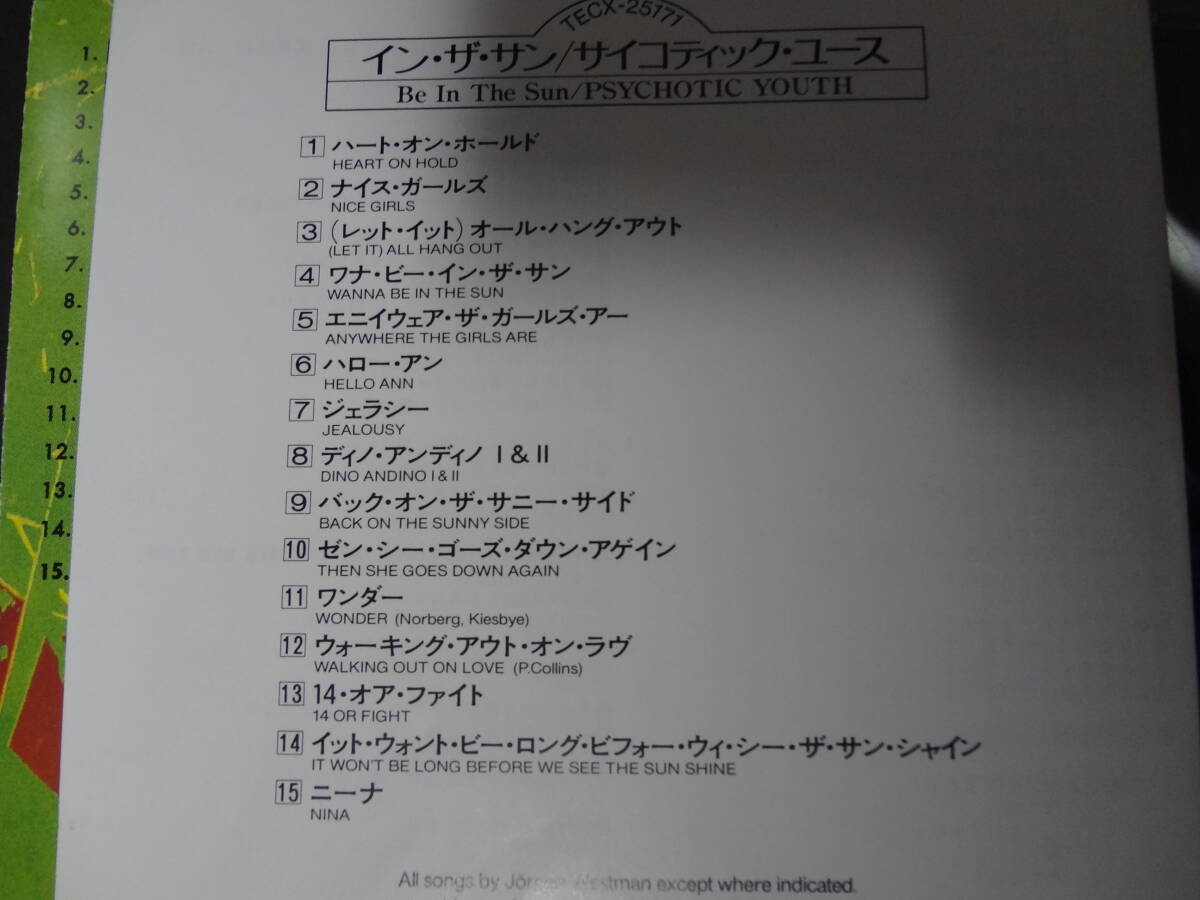 TECX-25171
イン・ザ・サン/サイコティック・ユース
Be In The Sun/PSYCHOTIC YOUTH
1 ハート・オン・ホールド
HEART ON HOLD
2 ナイス・ガールズ
NICE GIRLS
3 (レット・イット) オール・ハング・アウト
(LET IT) ALL HANG OUT
4 ワナ・ビー・イン・ザ・サン
WANNA BE IN THE SUN
5 エニイウェア・ザ・ガールズ・アー
ANYWHERE THE GIRLS ARE
6 ハロー・アン
HELLO ANN
7 ジェラシー
JEALOUSY
8 ディノ・アンディノ I & II
DINO ANDINO I & II
9 バック・オン・ザ・サニー・サイド
BACK ON THE SUNNY SIDE
10 ゼン・シー・ゴーズ・ダウン・アゲイン
THEN SHE GOES DOWN AGAIN
11 ワンダー
WONDER (Norberg, Kiesbye)
12 ウォーキング・アウト・オン・ラヴ
WALKING OUT ON LOVE (P.Collins)
13 14・オア・ファイト
14 OR FIGHT
14 イット・ウォント・ビー・ロング・ビフォー・ウィ・シー・ザ・サン・シャイン
IT WON'T BE LONG BEFORE WE SEE THE SUN SHINE
15 ニーナ
NINA
All songs by Jörgen Westman except where indicated.
1.
2.
3.
4.
5.
6.
7.
8.
9.
10.
11.
12.
13.
14.
15.